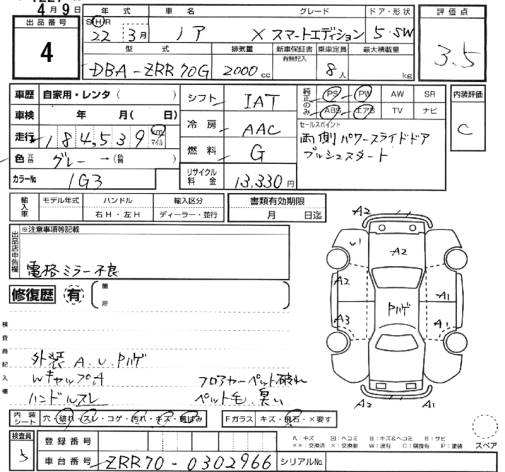 4月9日
出品番号
4
年式 車名 グレード ドア・形状 評価点
SHR 22 3月 ノア X スマートエディション 5・SW
3.5
型式 排気量 新車保証書 有無記入 乗車定員 最大積載量
DBA-ZRR70G 2000cc 8人 kg
車歴 自家用・レンタ( )
車検 年 月( 日)
走行 184,539 km マイル
色 元色 グレー →(色替 )
カラーNo 1G3
シフト IAT
冷房 AAC
燃料 G
リサイクル料金 13,330円
純正のみ PS PW AW SR
ABS エアB TV ナビ
セールスポイント
両側パワースライドドア
プッシュスタート
内装評価
C
輸入車 モデル年式 ハンドル 輸入区分
右H・左H ディーラー・並行
書類有効期限
月 日迄
出品店申告欄 ※注意事項等記載
電格ミラー不良
修復歴 有 箇所
検査員記入欄
外装 A.U.Pハゲ
WキャップA
ハンドルスレ
フロアカーペット破れ
ペット毛 臭い
A2
U1
A2
A2
A1
A3
A1
Pハゲ
A2
内装シート 穴・破れ・スレ・コゲ・汚れ・キズ・黄ばみ Fガラス キズ・飛石・×要す
検査員 登録番号
車台番号 ZRR70-0302966 シリアルNo.
スペア